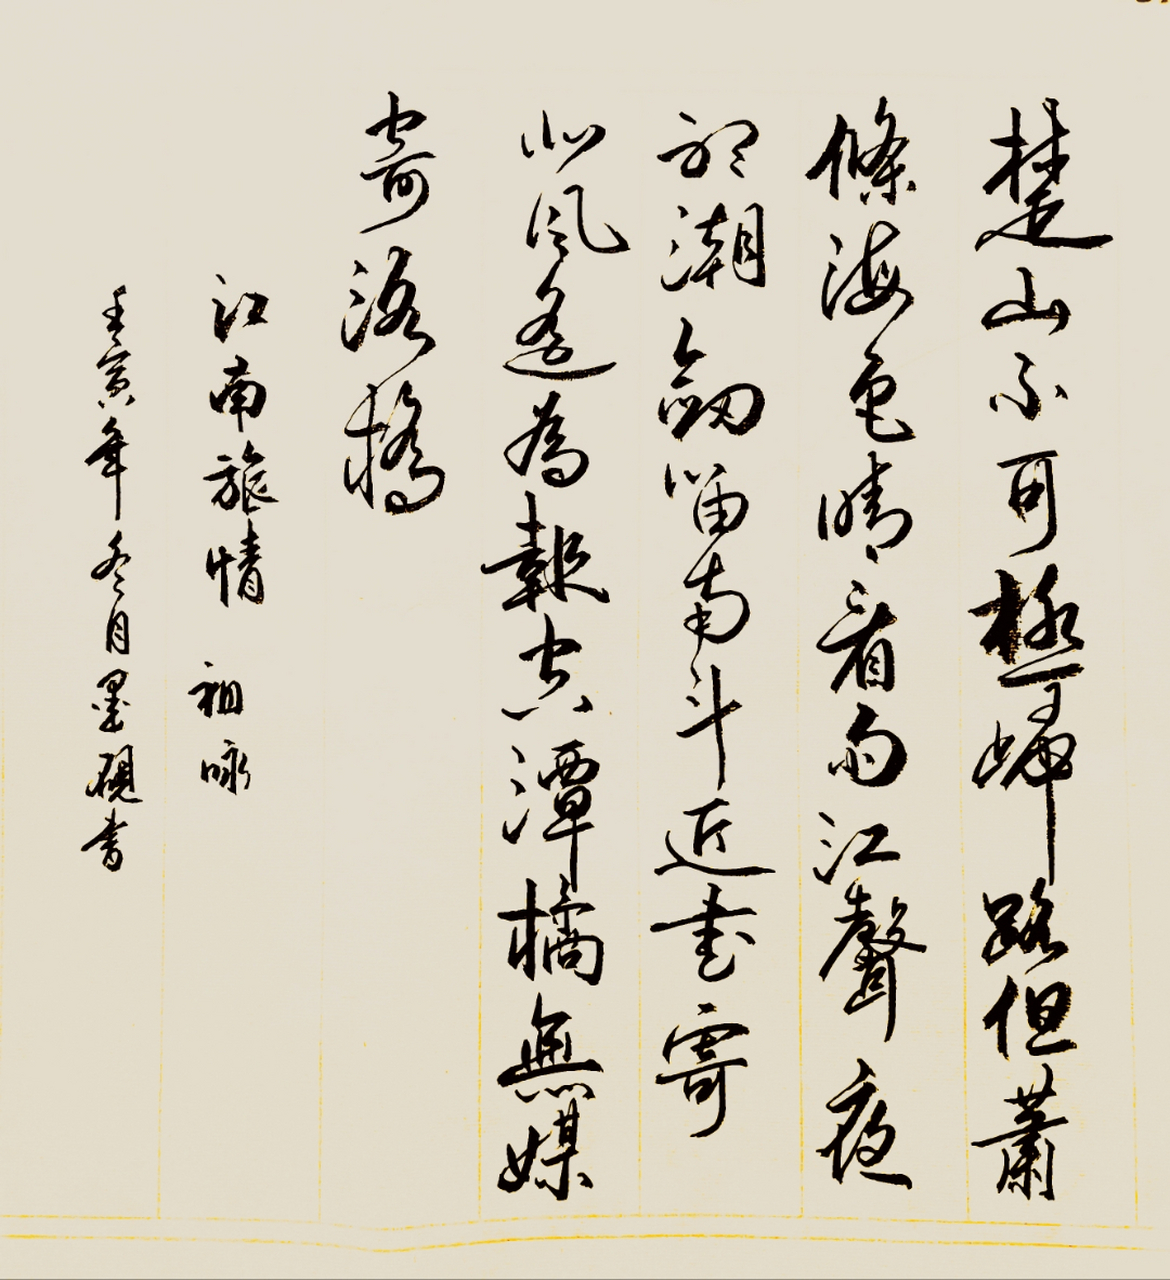 楚山不可極歸路但蕭
條海色晴看雨江聲夜
聽潮劍留南斗近書寄
北風遙為報空潭橘無媒
寄洛橋
江南旅情 祖咏
壬寅年冬月墨硯書